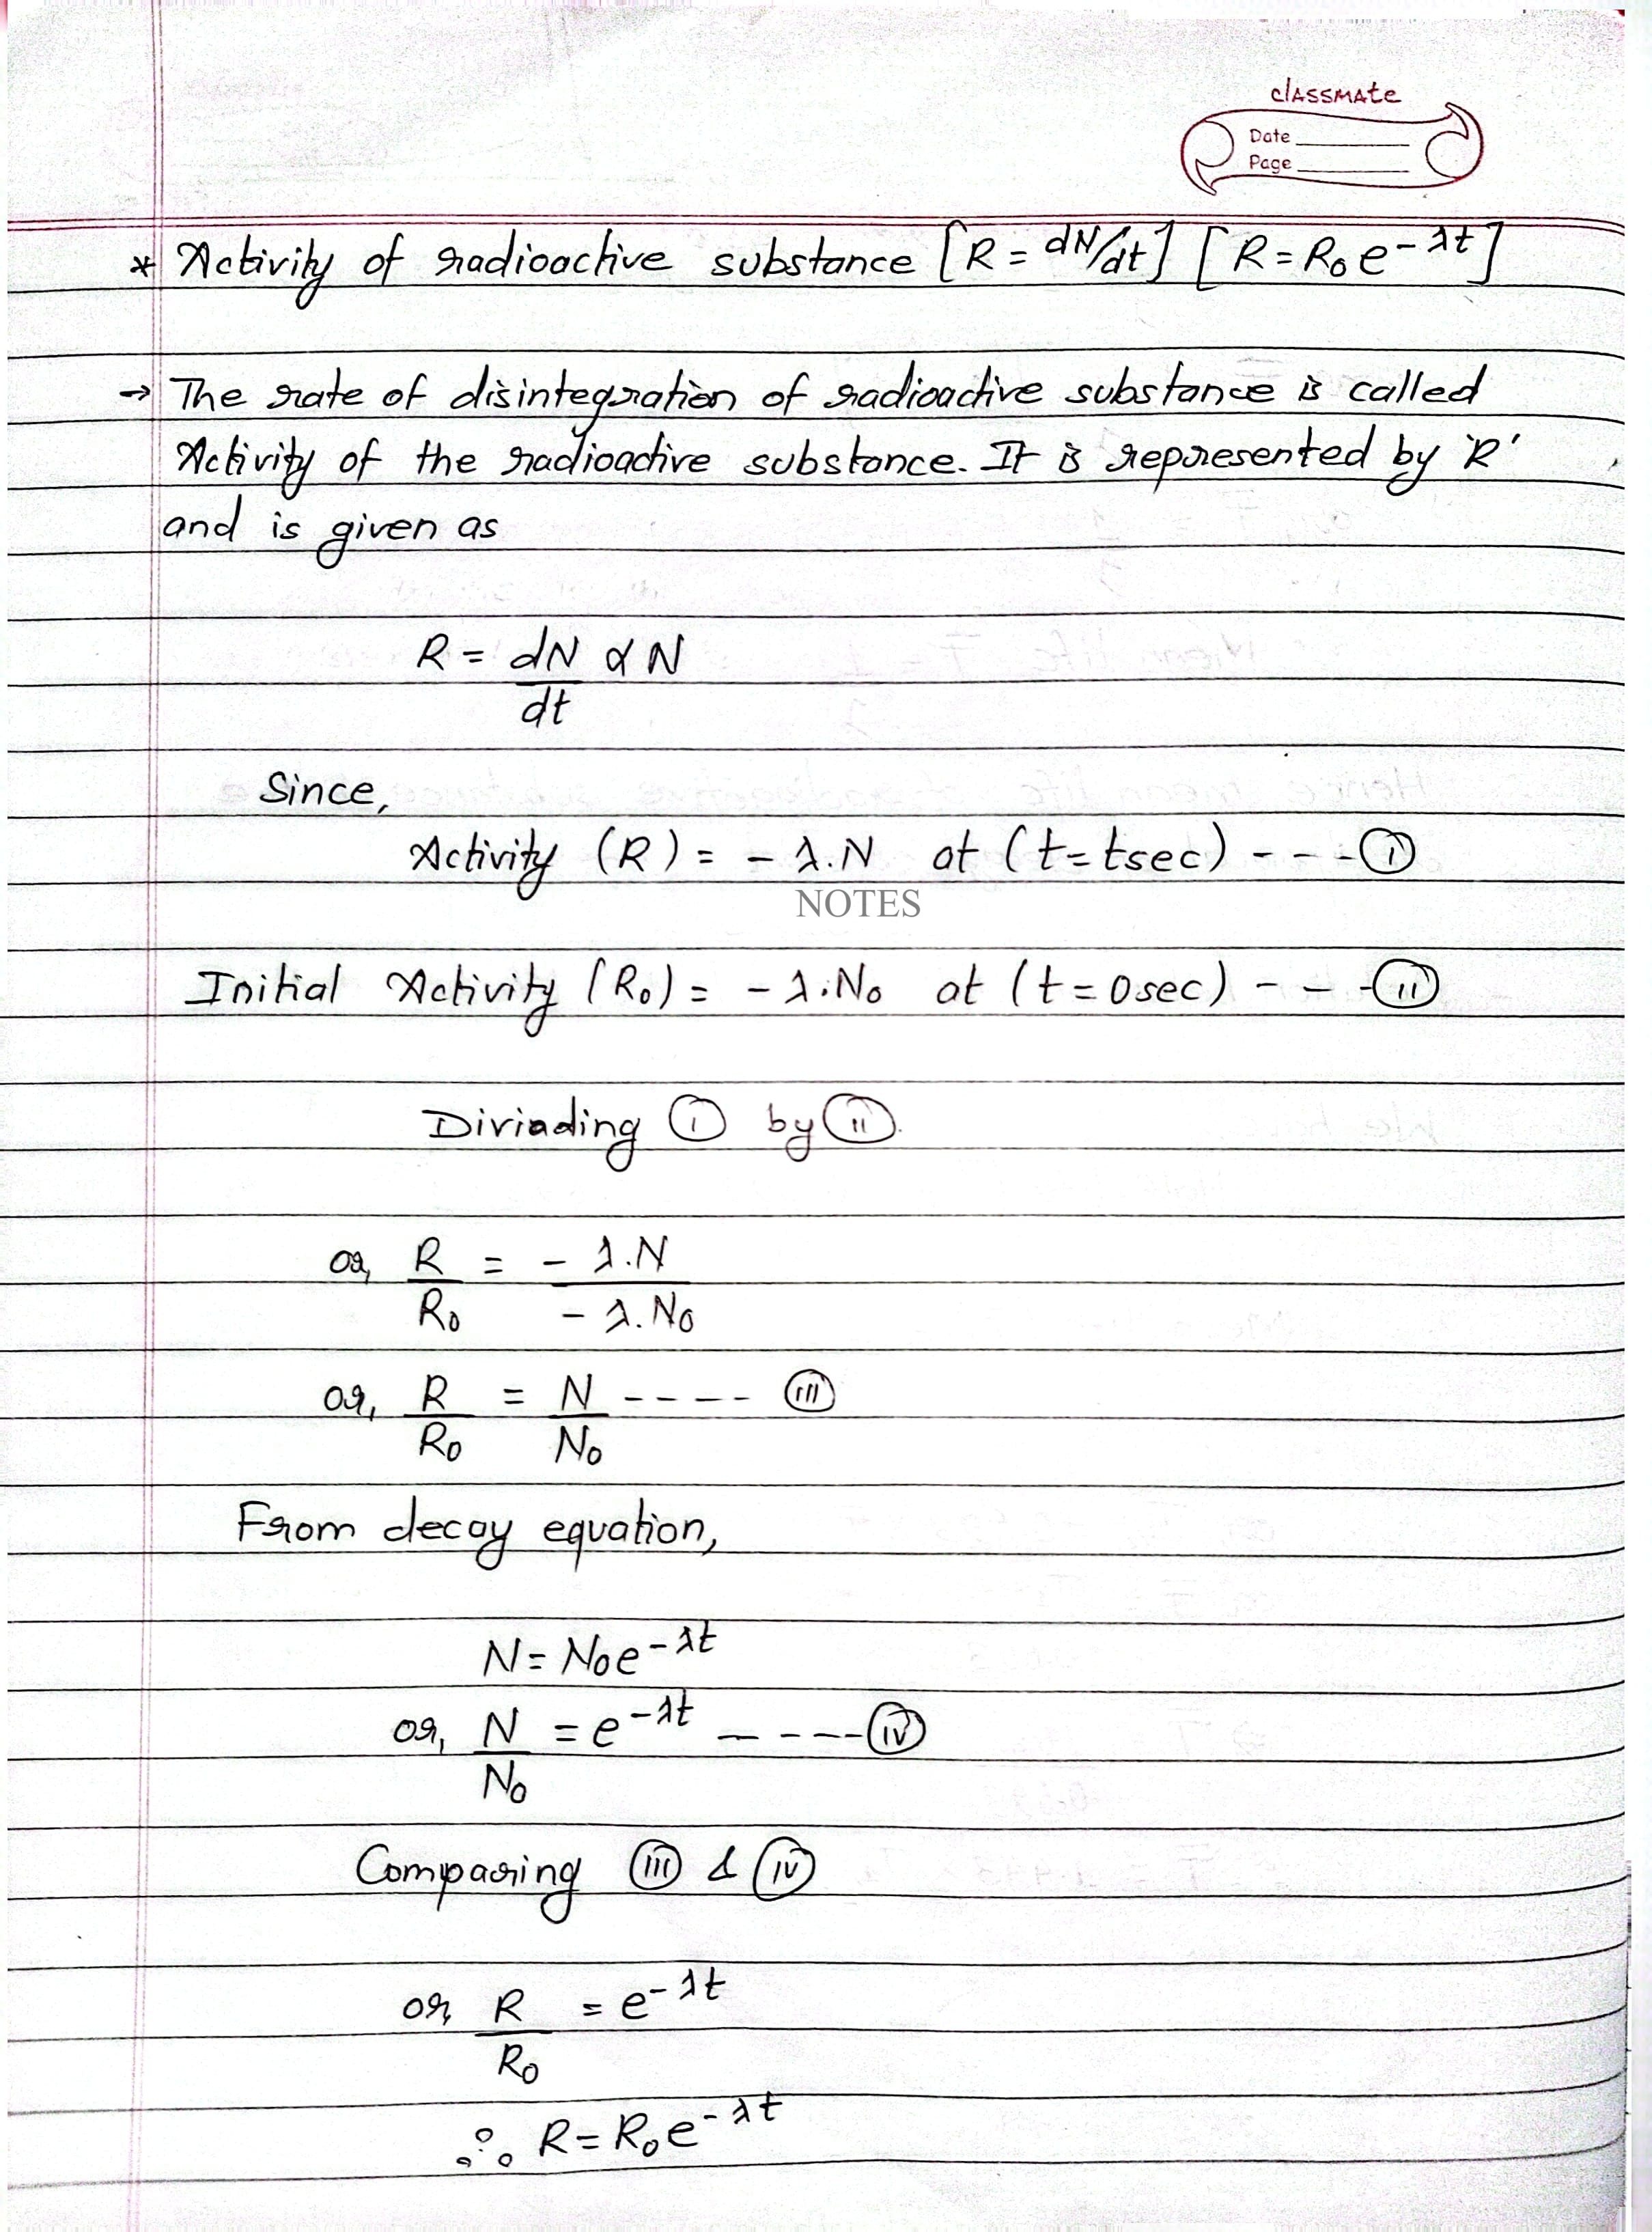 classmate
Date
Page
* Activity of radioactive substance [R = dN/dt] [R = R₀ e^-λt]
→ The rate of disintegration of radioactive substance is called
Activity of the radioactive substance. It is represented by 'R'
and is given as
R = dN/dt ∝ N
Since,
Activity (R) = - λ.N at (t = tsec) - - - (i)
NOTES
Initial Activity (R₀) = - λ.N₀ at (t = 0sec) - - - (ii)
Diviading (i) by (ii).
or, R/R₀ = - λ.N / - λ.N₀
or, R/R₀ = N/N₀ - - - - (iii)
From decay equation,
N = N₀e^-λt
or, N/N₀ = e^-λt - - - - (iv)
Comparing (iii) & (iv)
or, R/R₀ = e^-λt
∴ R = R₀e^-λt